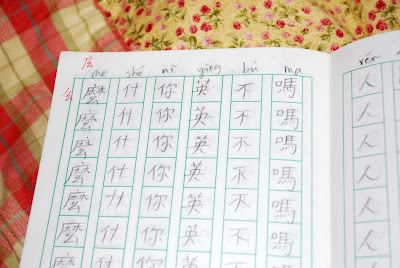 me shé nǐ yīng bù ma rén
么
麼 什 你 英 不 嗎 人
麼 什 你 英 不 嗎 人
麼 什 你 英 不 嗎 人
麼 什 你 英 不 嗎 人
麼 什 你 英 不 嗎 人
麼 什 你 英 不 嗎 人
麼 什 你 英 不 嗎